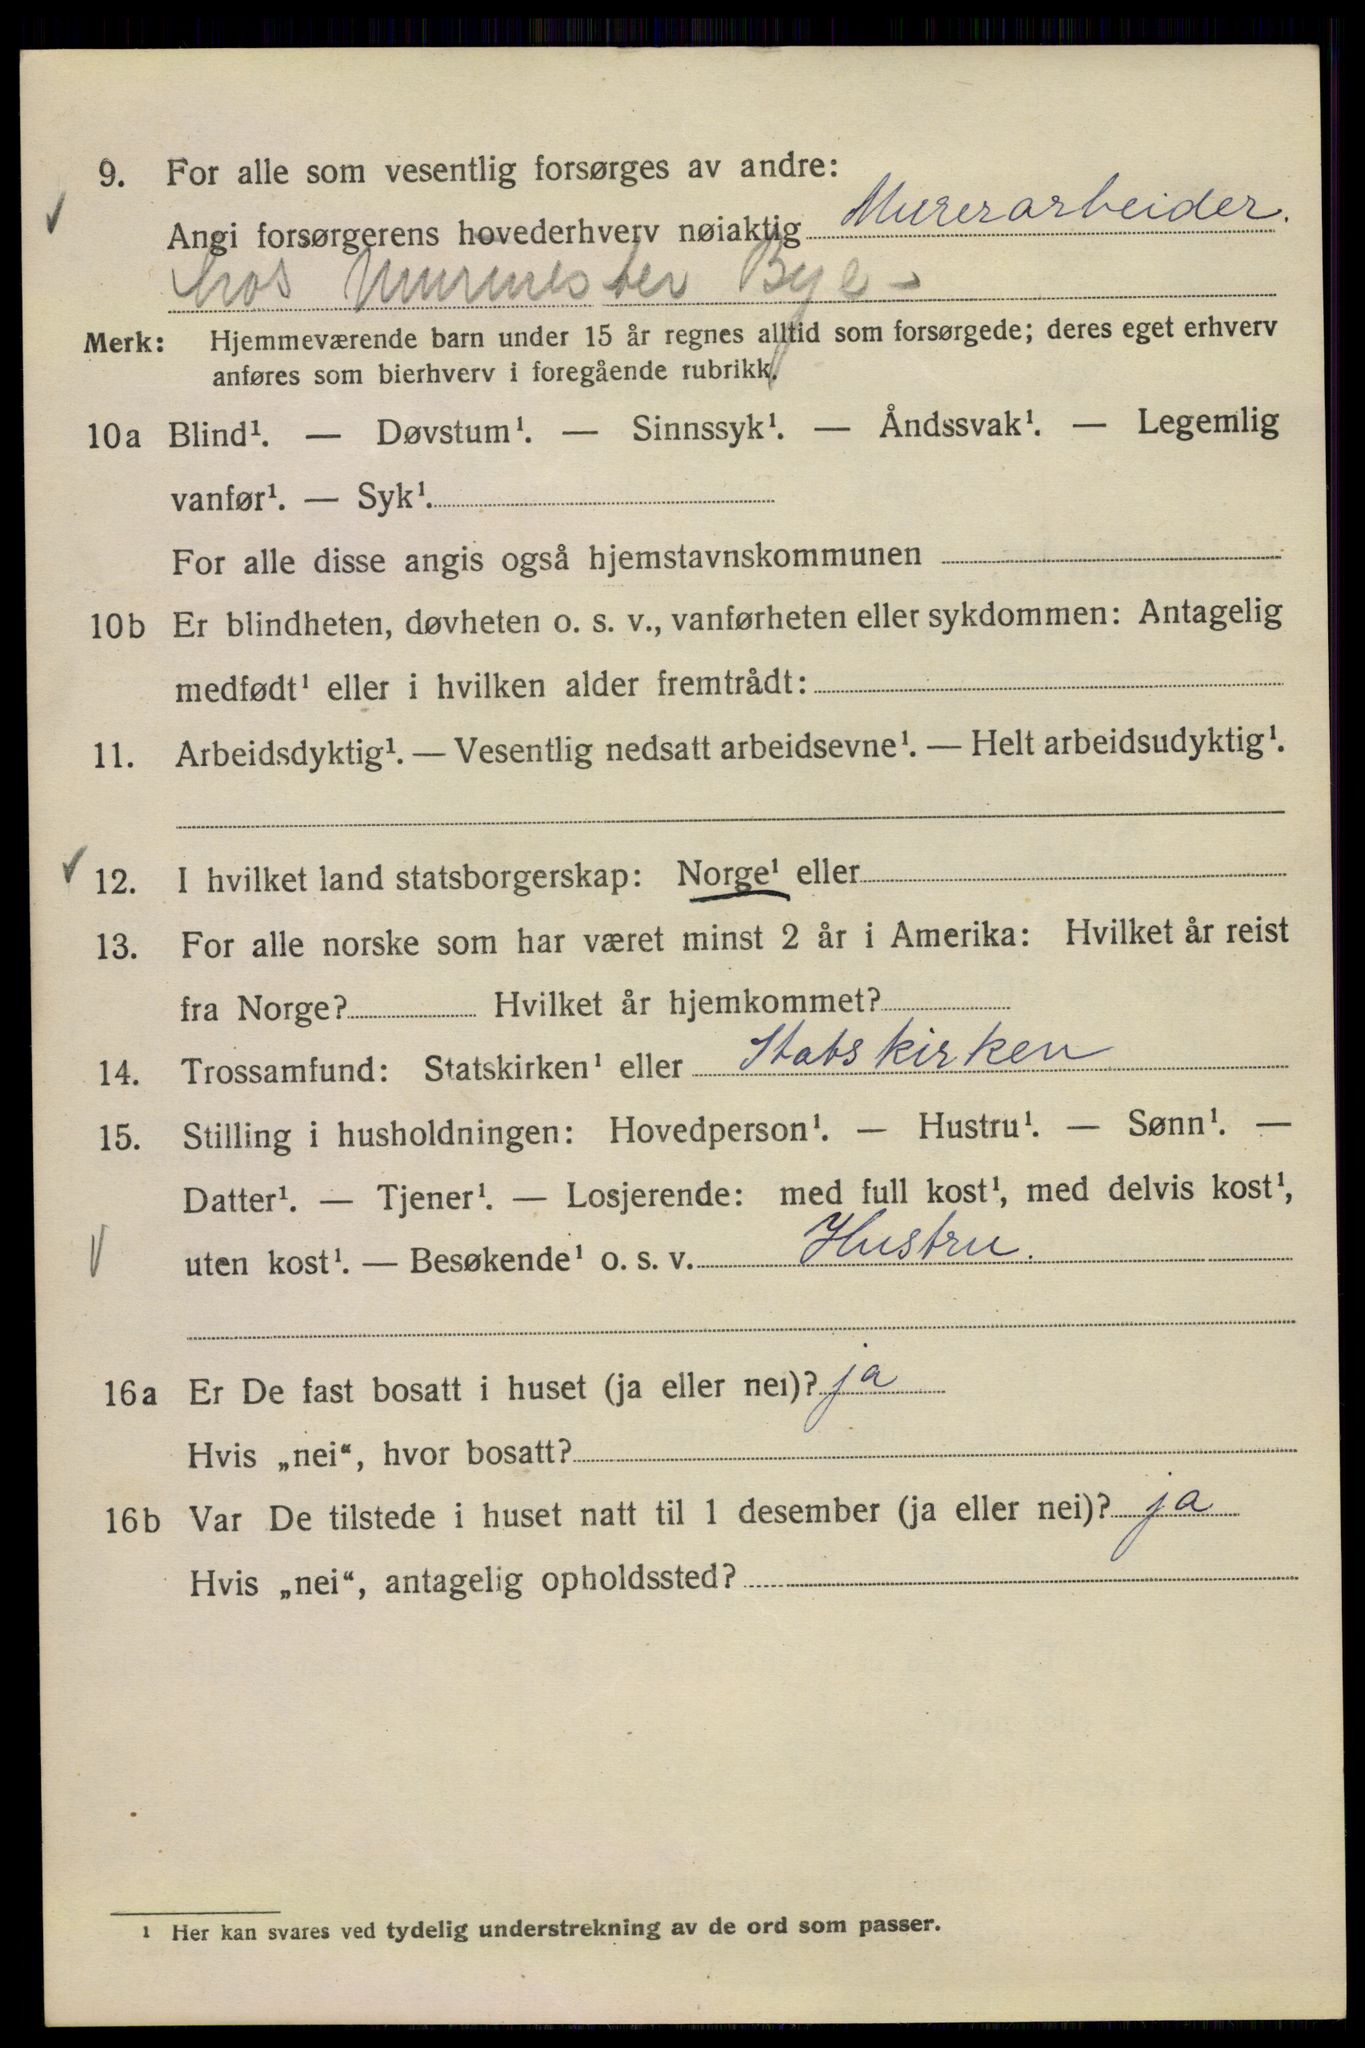 9. For alle som vesentlig forsørges av andre:
Angi forsørgerens hovederhverv nøiaktig Murerarbeider.
hos Murmester Bye
Merk: Hjemmeværende barn under 15 år regnes alltid som forsørgede; deres eget erhverv
anføres som bierhverv i foregående rubrikk.
10a Blind¹. — Døvstum¹. — Sinnssyk¹. — Åndssvak¹. — Legemlig
vanfør¹. — Syk¹.
For alle disse angis også hjemstavnskommunen
10b Er blindheten, døvheten o. s. v., vanførheten eller sykdommen: Antagelig
medfødt¹ eller i hvilken alder fremtrådt:
11. Arbeidsdyktig¹. — Vesentlig nedsatt arbeidsevne¹. — Helt arbeidsudyktig¹.
12. I hvilket land statsborgerskap: Norge¹ eller
13. For alle norske som har været minst 2 år i Amerika: Hvilket år reist
fra Norge? Hvilket år hjemkommet?
14. Trossamfund: Statskirken¹ eller Statskirken
15. Stilling i husholdningen: Hovedperson¹. — Hustru¹. — Sønn¹. —
Datter¹. — Tjener¹. — Losjerende: med full kost¹, med delvis kost¹,
uten kost¹. — Besøkende¹ o. s. v. Hustru.
16a Er De fast bosatt i huset (ja eller nei)? ja
Hvis „nei“, hvor bosatt?
16b Var De tilstede i huset natt til 1 desember (ja eller nei)? ja
Hvis „nei“, antagelig opholdssted?
¹ Her kan svares ved tydelig understrekning av de ord som passer.